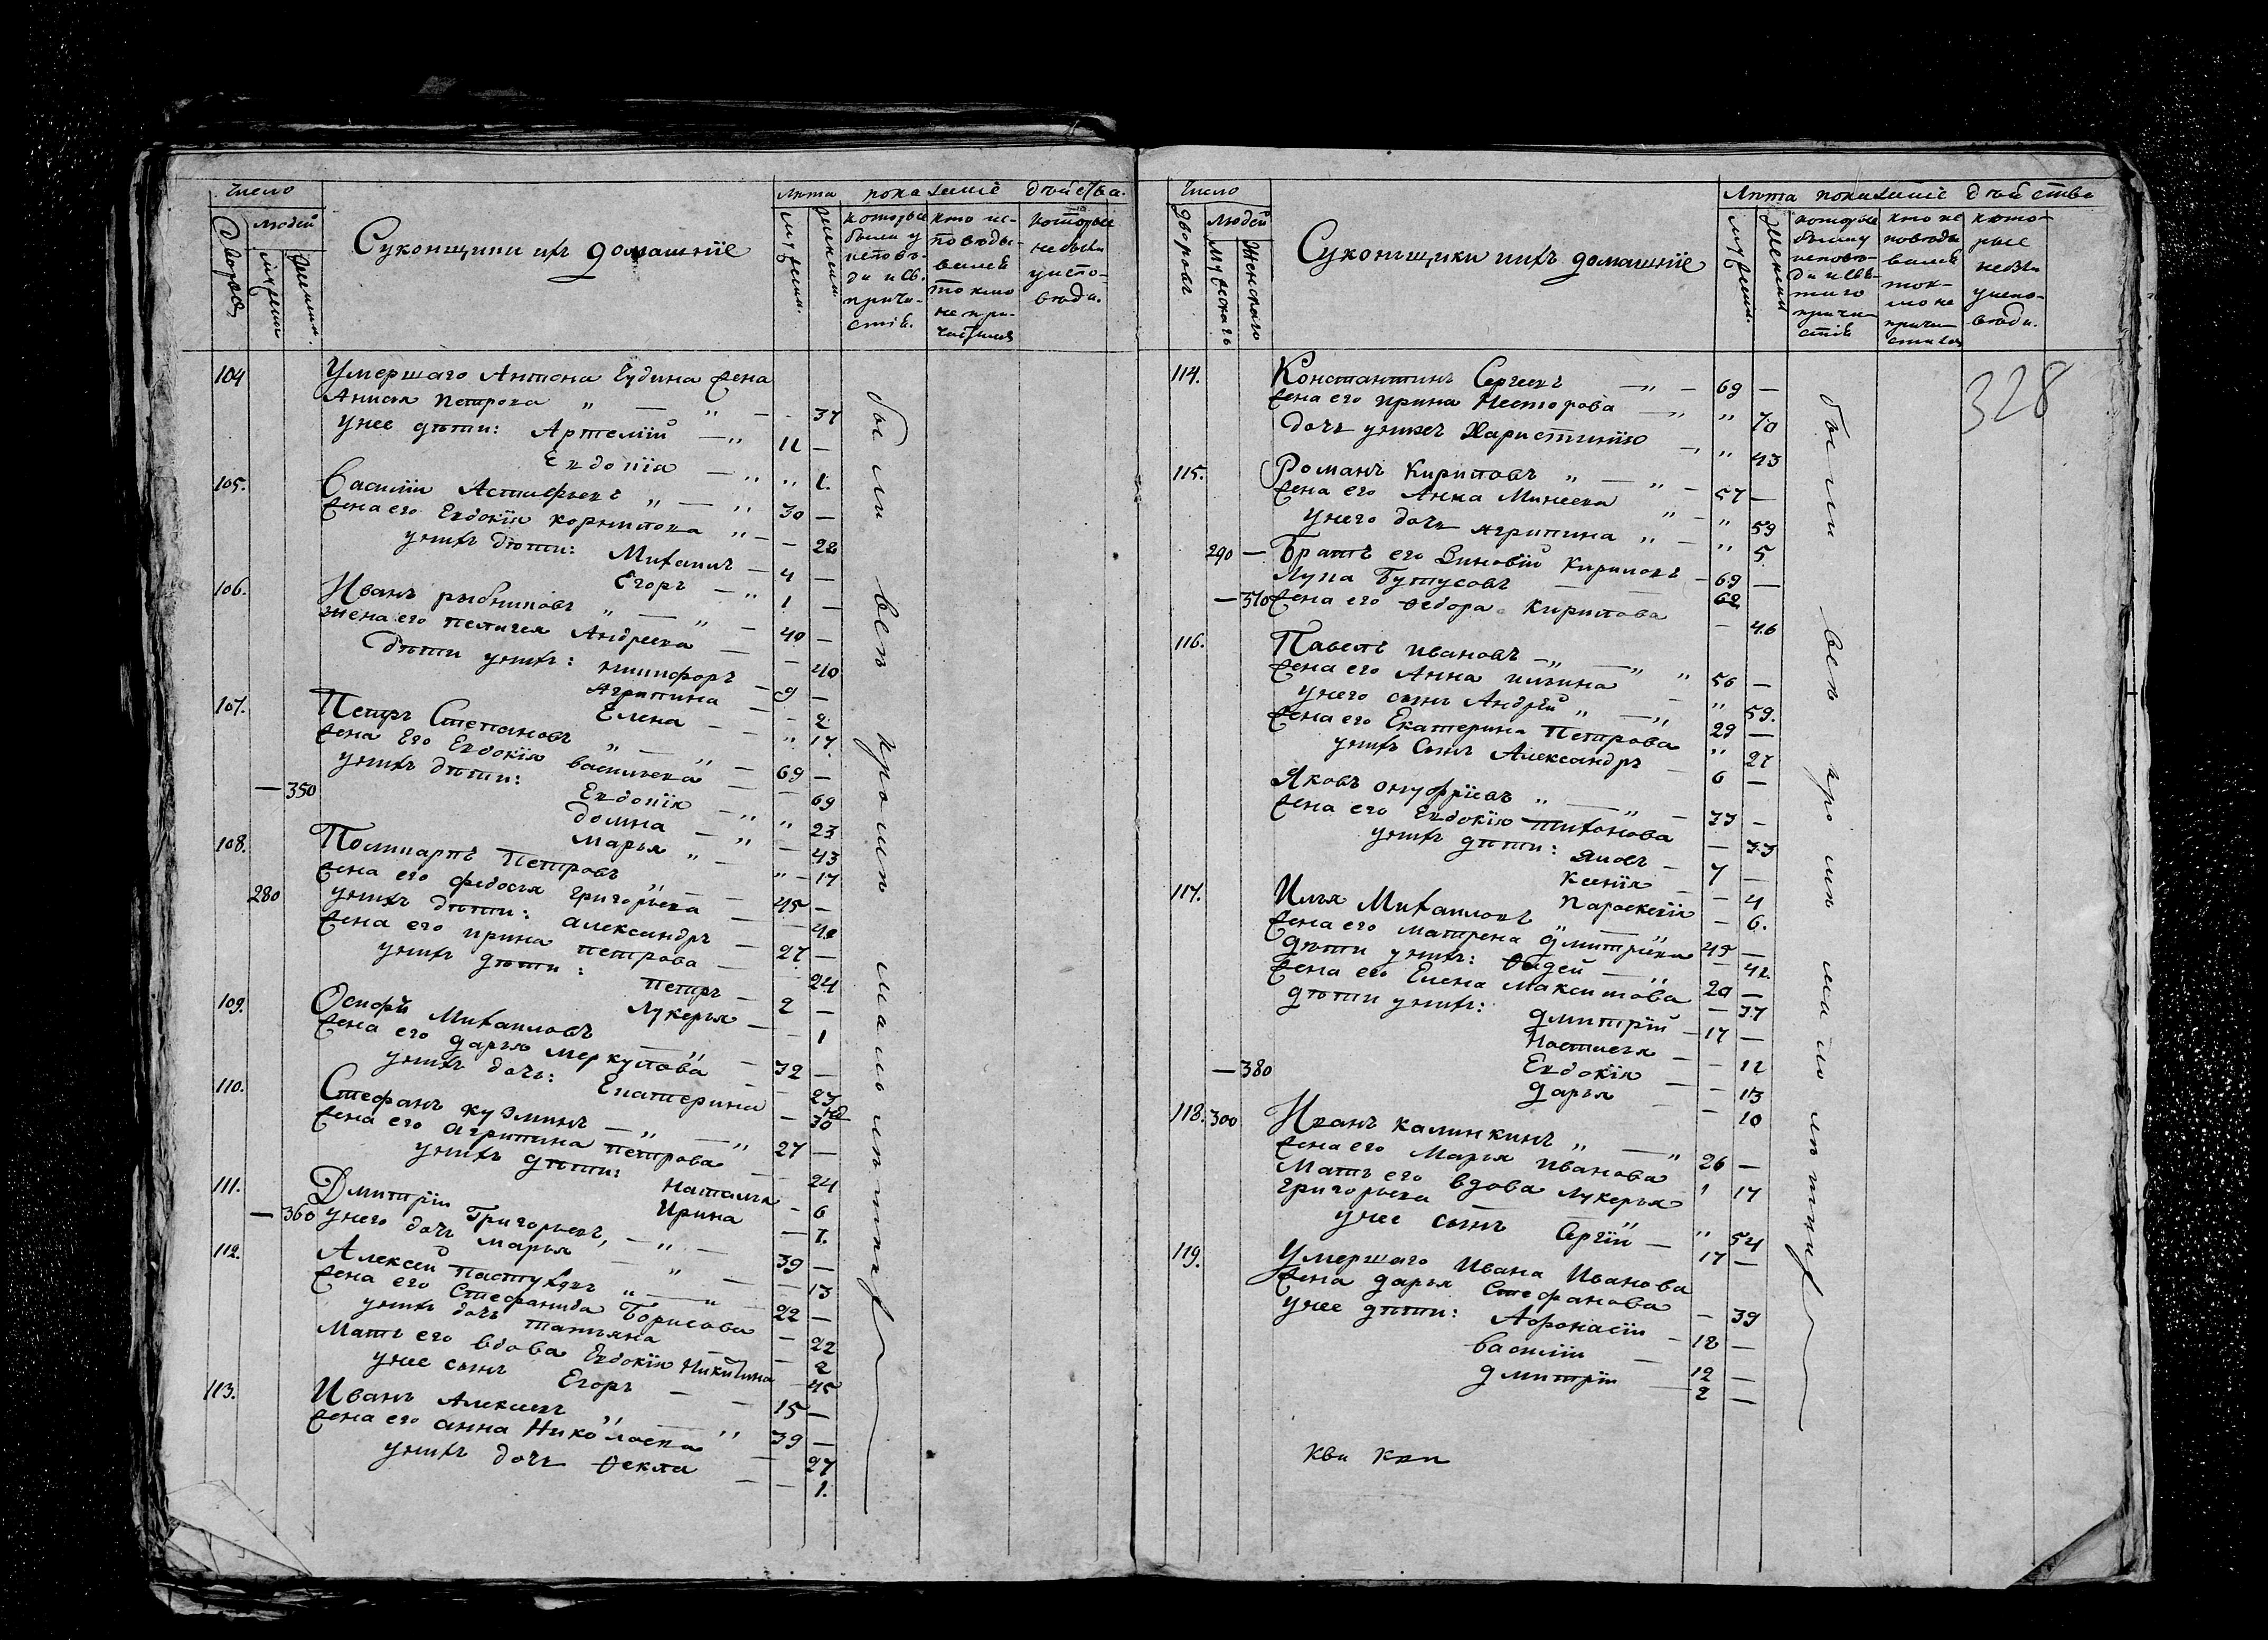 Число
Дворовъ
людей
мужеска
женска
Суконщики ихъ домашніе
Лѣта
мужеска
женска
показаніе дѣйства.
которые были у исповѣди и св. причастія.
кто исповѣдывался токмо не причастился
которые не были у исповѣди.
104 Умершаго Антона Еудина жена
Анисья Петрова " — " — - 37
у нее дѣти: Артемій — " 11 —
Евдокіа — " " 1.
105. Василій Астафьевъ " — " 30 —
жена его Евдокія Корнилова " — — 28
у нихъ дѣти: Михаилъ — 4 —
Егоръ — " 1 —
106. Иванъ рыбниковъ " — " — 40 —
жена его Пелагея Андреева — — 40
Дѣти у нихъ: Никифоръ — 9 —
Агрипина — - 2
Елена — — " 17
107. Петръ Степановъ " — " — 69 —
жена Его Евдокія васильева — — 69
у нихъ дѣти: Евдокія — " " 23
— 350
домна — " — 43
Марья " — " — 17
108. Поликарпъ Петровъ " — 45 —
жена его федосья григорьева — — 40
280 у нихъ дѣти: александръ — 27 —
жена его ирина петрова — 24
у нихъ дѣти: петръ — 2 —
Лукерья — — 1
109. Осипъ Михаиловъ — " — 32 —
жена его дарья меркулова — 23
у нихъ дочь: Екатерина — 30
110. Стефанъ кузминъ — " — " 27 —
жена его агрипина петрова — 24
у нихъ дѣти: Наталья — 6
Ирина — 1.
111. Дмитріи Григорьевъ, — " — 39 —
— 360 у него дочь марья — " — — 13
112. Алексей пастуховъ " — " 22 —
жена его Стефанида Борисова — 22
у нихъ дочь татьяна — 2
Мать его вдова Евдокія Никитина — 45
у нее сынъ Егоръ — — 15 —
113. Иванъ Алексеевъ " — " 39 —
жена его анна Николаева — 27
у нихъ дочь Ѳекла — — 1.
были вси прошли малолѣтних
Число
дворовъ
людей
мужескаго
женскаго
Суконьщики ихъ домашніе
Лѣта
мужеска.
женска
показаніе дѣйства
которые были у исповѣди и святаго причастія
кто исповѣдывался токмо не причастился
которые небыли у исповѣди.
328
114. Константинъ Сергеевъ — " — 69 —
жена его ирина Несторова — " " 70
дочь у нихъ Харистинію — " " 43
115. Романъ Кириловъ " — " — 57 —
жена его Анна Минеева " — " 59
у него дочь агрипина " — " 5
290 — Братъ его Зиновій Кириловъ — 69 —
Лупа Бутусовъ — 62
— 370 жена его Ѳедора Кирилова — 46
116. Павелъ ивановъ — " — " " 56 —
жена его Анна ильина — " 59.
у него сынъ Андрей " — " 29 —
жена его Екатерина Петрова " 27
у нихъ Сынъ Александръ — 6 —
Яковъ онуфріевъ " — " — 33 —
жена его Евдокія тихонова — 33
у нихъ дѣти: яковъ — 7 —
ксенія — — 4
Параскевія — 6.
117. Илья Михаиловъ — " 45 —
жена его матрена дмитріева — 42
дѣти у нихъ: Ѳадей — " 20 —
жена его Елена максимова — 37
дѣти у нихъ: дмитрій — 17 —
Настасья — — 12
— 380 Евдокія — — 13
дарья — 10
118. 300 Иванъ калинкинъ " — " 26 —
жена его Марья иванова ' 17
Мать его вдова Лукерья
григорьева — " 54
у нее сынъ Сергій — 17 —
119. Умершаго Ивана Иванова
жена дарья Стефанова — 39
у нее дѣти: Афонасій — 18 —
василіи — 12 —
дмитріи — 2 —
были вси прошли малолѣтних